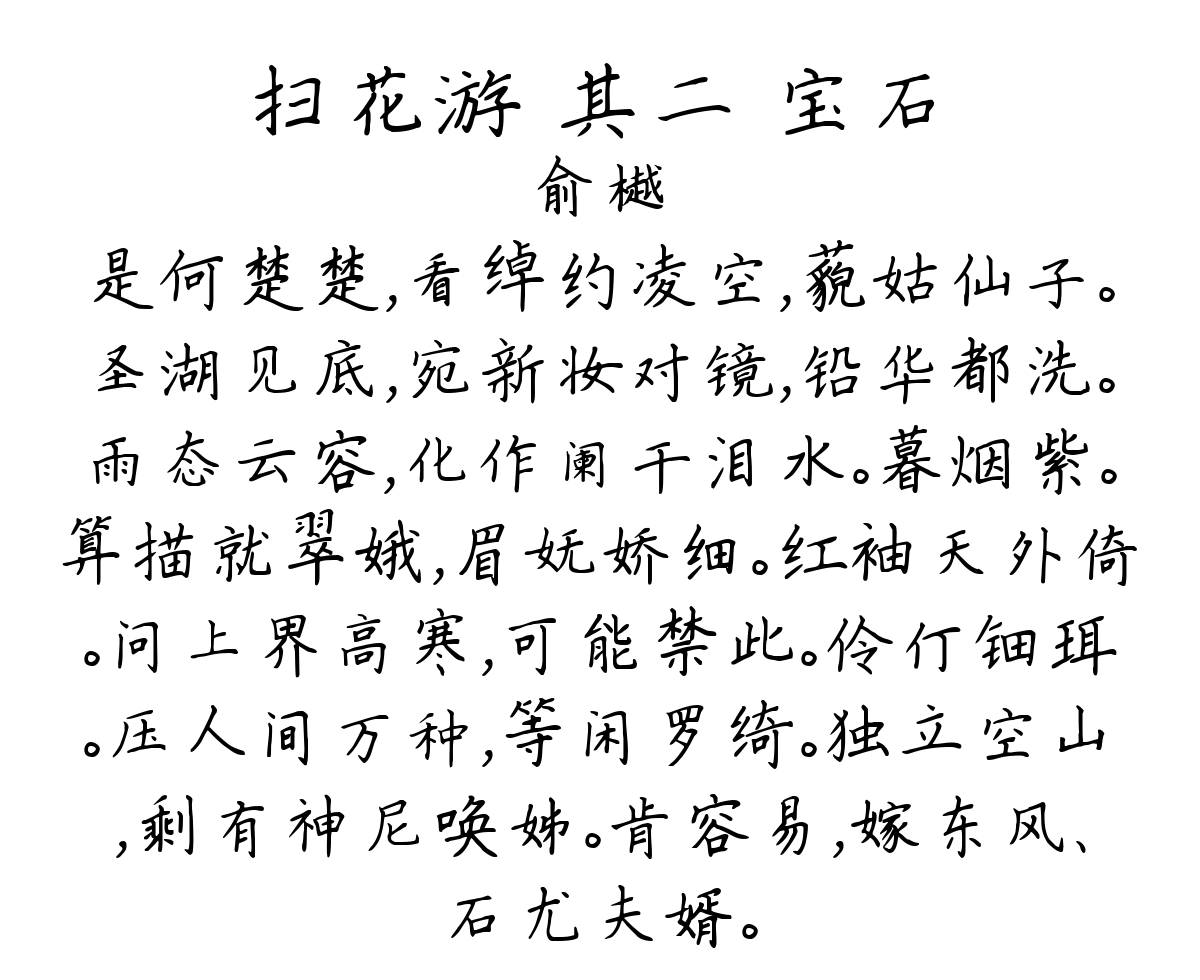 扫花游 其二 宝石
俞樾
是何楚楚,看绰约凌空,藐姑仙子。
圣湖见底,宛新妆对镜,铅华都洗。
雨态云容,化作阑干泪水。暮烟紫。
算描就翠娥,眉妩娇细。红袖天外倚
。问上界高寒,可能禁此。伶仃钿珥
。压人间万种,等闲罗绮。独立空山
,剩有神尼唤姊。肯容易,嫁东风、
石尤夫婿。